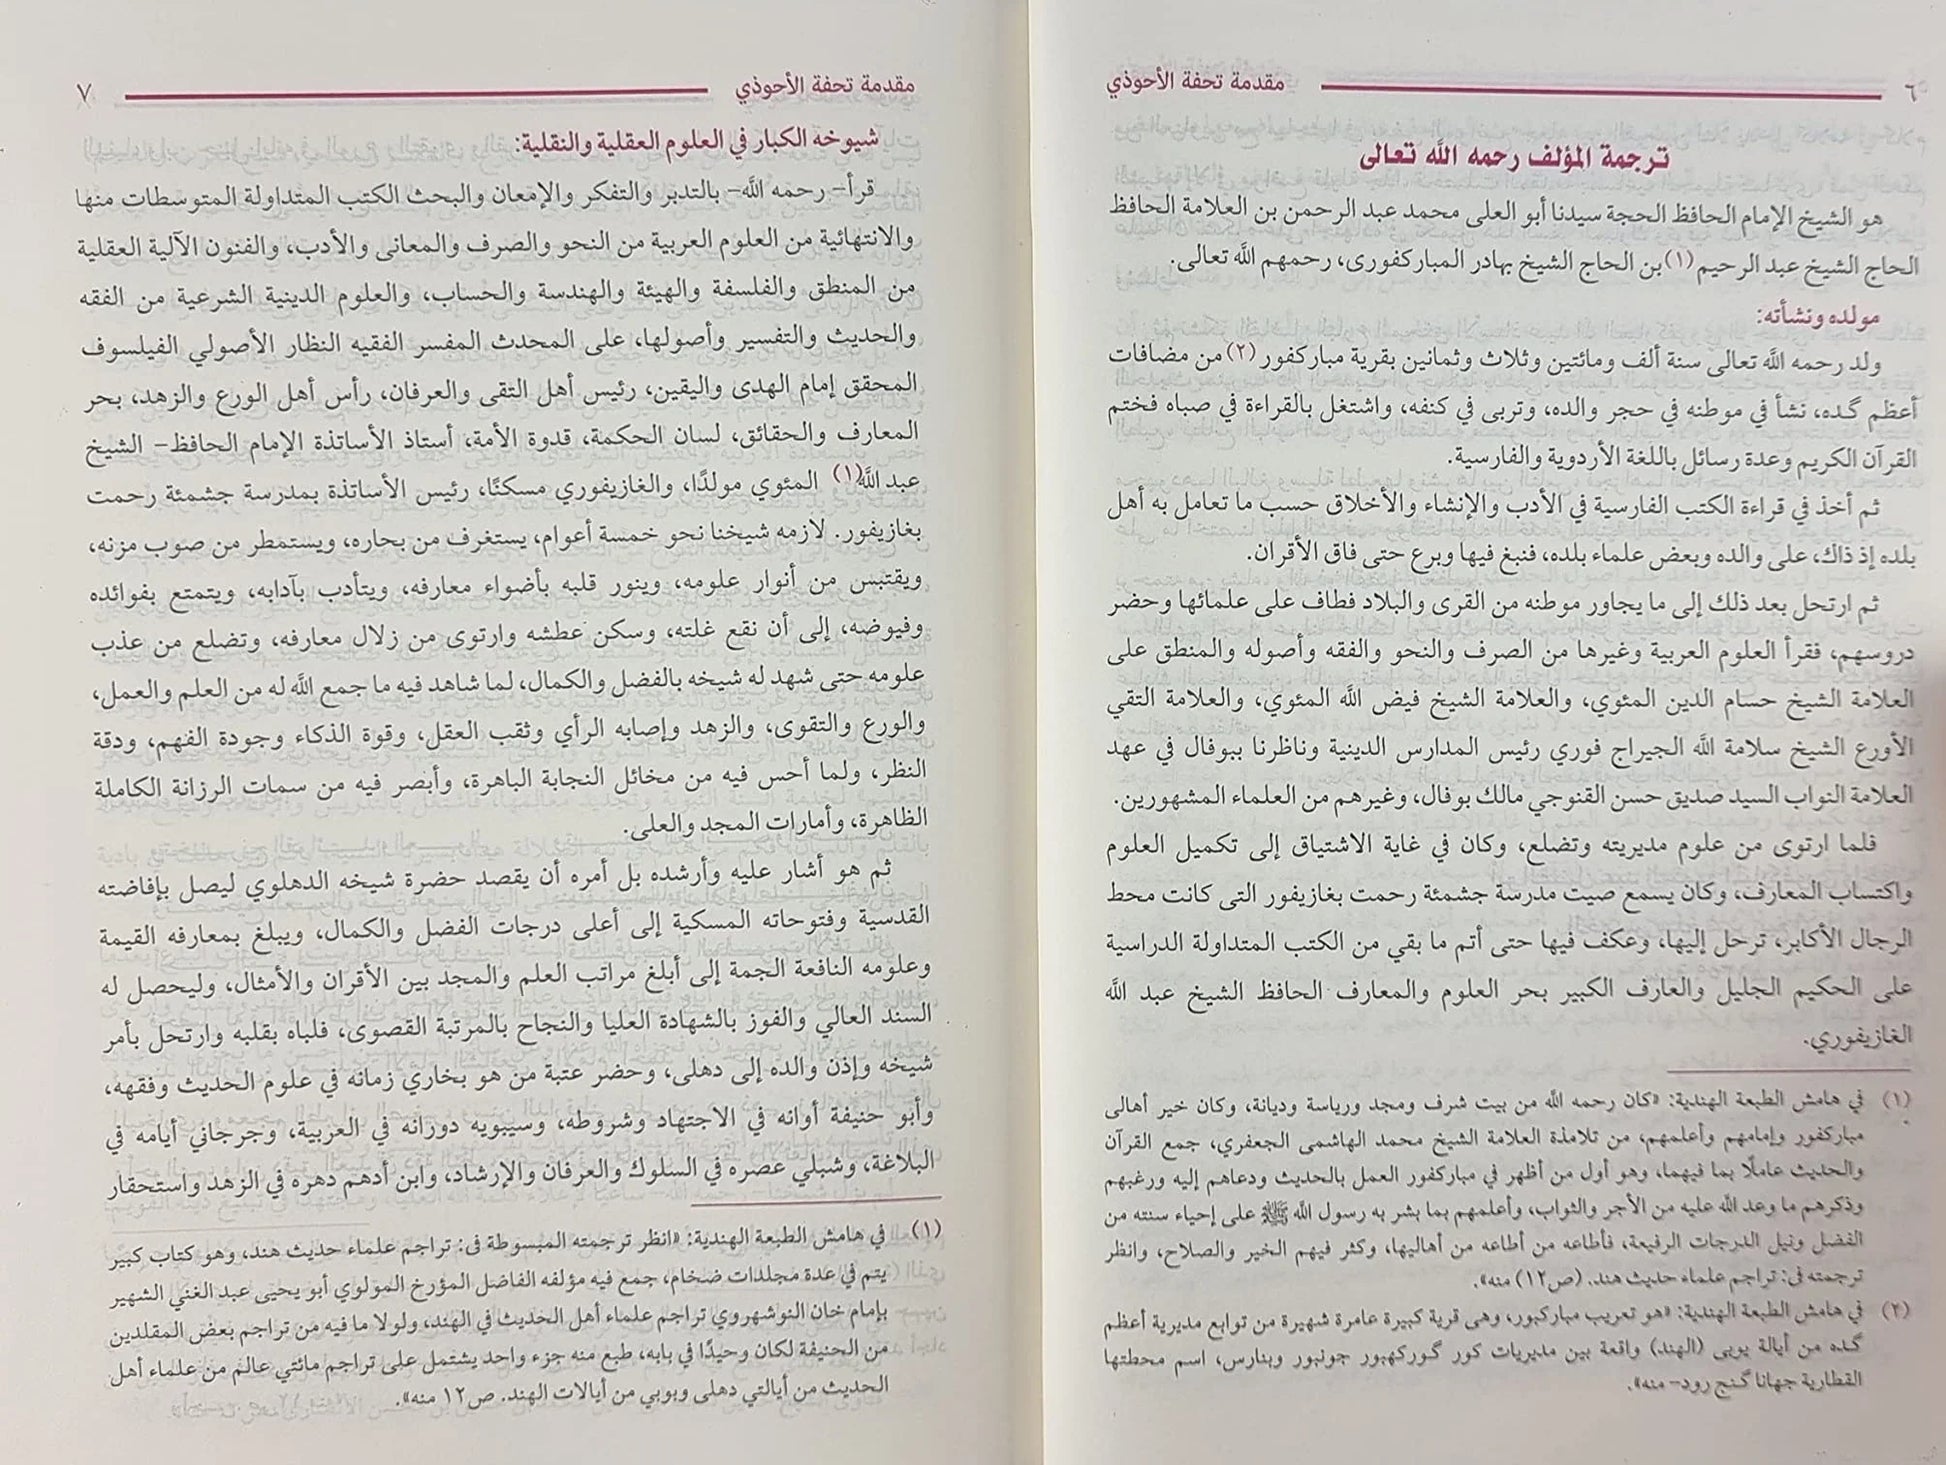 ٦ مقدمة تحفة الأحوذي
ترجمة المؤلف رحمه الله تعالى
هو الشيخ الإمام الحافظ الحجة سيدنا أبو العلى محمد عبد الرحمن بن العلامة الحافظ
الحاج الشيخ عبد الرحيم (١) بن الحاج الشيخ بهادر المباركفورى، رحمهم الله تعالى.
مولده ونشأته:
ولد رحمه الله تعالى سنة ألف ومائتين وثلاث وثمانين بقرية مباركفور (٢) من مضافات
أعظم گده، نشأ في موطنه في حجر والده، وتربى في كنفه، واشتغل بالقراءة في صباه فختم
القرآن الكريم وعدة رسائل باللغة الأردوية والفارسية.
ثم أخذ في قراءة الكتب الفارسية في الأدب والإنشاء والأخلاق حسب ما تعامل به أهل
بلده إذ ذاك، على والده وبعض علماء بلده، فنبغ فيها وبرع حتى فاق الأقران.
ثم ارتحل بعد ذلك إلى ما يجاور موطنه من القرى والبلاد فطاف على علمائها وحضر
دروسهم، فقرأ العلوم العربية وغيرها من الصرف والنحو والفقه وأصوله والمنطق على
العلامة الشيخ حسام الدين المئوي، والعلامة الشيخ فيض الله المئوي، والعلامة التقي
الأورع الشيخ سلامة الله الجيراج فوري رئيس المدارس الدينية وناظرنا ببوفال في عهد
العلامة النواب السيد صديق حسن القنوجي مالك بوفال، وغيرهم من العلماء المشهورين.
فلما ارتوى من علوم مديريته وتضلع، وكان في غاية الاشتياق إلى تكميل العلوم
واكتساب المعارف، وكان يسمع صيت مدرسة جشمئة رحمت بغازيفور التى كانت محط
الرجال الأكابر، ترحل إليها، وعكف فيها حتى أتم ما بقي من الكتب المتداولة الدراسية
على الحكيم الجليل والعارف الكبير بحر العلوم والمعارف الحافظ الشيخ عبد الله
الغازيفوري.
(١) في هامش الطبعة الهندية: «كان رحمه الله من بيت شرف ومجد ورياسة وديانة، وكان خير أهالى
مباركفور وإمامهم وأعلمهم، من تلامذة العلامة الشيخ محمد الهاشمى الجعفري، جمع القرآن
والحديث عاملًا بما فيهما، وهو أول من أظهر في مباركفور العمل بالحديث ودعاهم إليه ورغبهم
وذكرهم ما وعد الله عليه من الأجر والثواب، وأعلمهم بما بشر به رسول الله ﷺ على إحياء سنته من
الفضل ونيل الدرجات الرفيعة، فأطاعه من أطاعه من أهاليها، وكثر فيهم الخير والصلاح، وانظر
ترجمته فى: تراجم علماء حديث هند. (ص١٢) منه».
(٢) في هامش الطبعة الهندية: «هو تعريب مباركبور، وهى قرية كبيرة عامرة شهيرة من توابع مديرية أعظم
گده من أيالة يوبى (الهند) واقعة بين مديريات كور گوركهبور جونبور وبنارس، اسم محطتها
القطارية جهانا گنج رود- منه».
مقدمة تحفة الأحوذي ٧
شيوخه الكبار في العلوم العقلية والنقلية:
قرأ- رحمه الله- بالتدبر والتفكر والإمعان والبحث الكتب المتداولة المتوسطات منها
والانتهائية من العلوم العربية من النحو والصرف والمعانى والأدب، والفنون الآلية العقلية
من المنطق والفلسفة والهيئة والهندسة والحساب، والعلوم الدينية الشرعية من الفقه
والحديث والتفسير وأصولها، على المحدث المفسر الفقيه النظار الأصولي الفيلسوف
المحقق إمام الهدى واليقين، رئيس أهل التقى والعرفان، رأس أهل الورع والزهد، بحر
المعارف والحقائق، لسان الحكمة، قدوة الأمة، أستاذ الأساتذة الإمام الحافظ- الشيخ
عبد الله(١) المئوي مولدًا، والغازيفوري مسكنًا، رئيس الأساتذة بمدرسة جشمئة رحمت
بغازيفور. لازمه شيخنا نحو خمسة أعوام، يستغرف من بحاره، ويستمطر من صوب مزنه،
ويقتبس من أنوار علومه، وينور قلبه بأضواء معارفه، ويتأدب بآدابه، ويتمتع بفوائده
وفيوضه، إلى أن نقع غلته، وسكن عطشه وارتوى من زلال معارفه، وتضلع من عذب
علومه حتى شهد له شيخه بالفضل والكمال، لما شاهد فيه ما جمع الله له من العلم والعمل،
والورع والتقوى، والزهد وإصابه الرأي وثقب العقل، وقوة الذكاء وجودة الفهم، ودقة
النظر، ولما أحس فيه من مخائل النجابة الباهرة، وأبصر فيه من سمات الرزانة الكاملة
الظاهرة، وأمارات المجد والعلى.
ثم هو أشار عليه وأرشده بل أمره أن يقصد حضرة شيخه الدهلوي ليصل بإفاضته
القدسية وفتوحاته المسكية إلى أعلى درجات الفضل والكمال، ويبلغ بمعارفه القيمة
وعلومه النافعة الجمة إلى أبلغ مراتب العلم والمجد بين الأقران والأمثال، وليحصل له
السند العالي والفوز بالشهادة العليا والنجاح بالمرتبة القصوى، فلباه بقلبه وارتحل بأمر
شيخه وإذن والده إلى دهلى، وحضر عتبة من هو بخاري زمانه في علوم الحديث وفقهه،
وأبو حنيفة أوانه في الاجتهاد وشروطه، وسيبويه دورانه في العربية، وجرجاني أيامه في
البلاغة، وشبلي عصره في السلوك والعرفان والإرشاد، وابن أدهم دهره في الزهد واستحقار
(١) في هامش الطبعة الهندية: «انظر ترجمته المبسوطة فى: تراجم علماء حديث هند، وهو كتاب كبير
يتم في عدة مجلدات ضخام، جمع فيه مؤلفه الفاضل المؤرخ المولوي أبو يحيى عبد الغني الشهير
بإمام خان النوشهروي تراجم علماء أهل الحديث في الهند، ولولا ما فيه من تراجم بعض المقلدين
من الحنيفة لكان وحيدًا في بابه، طبع منه جزء واحد يشتمل على تراجم مائتي عالم من علماء أهل
الحديث من أيالتي دهلى وبوبي من أيالات الهند. ص١٢ منه».